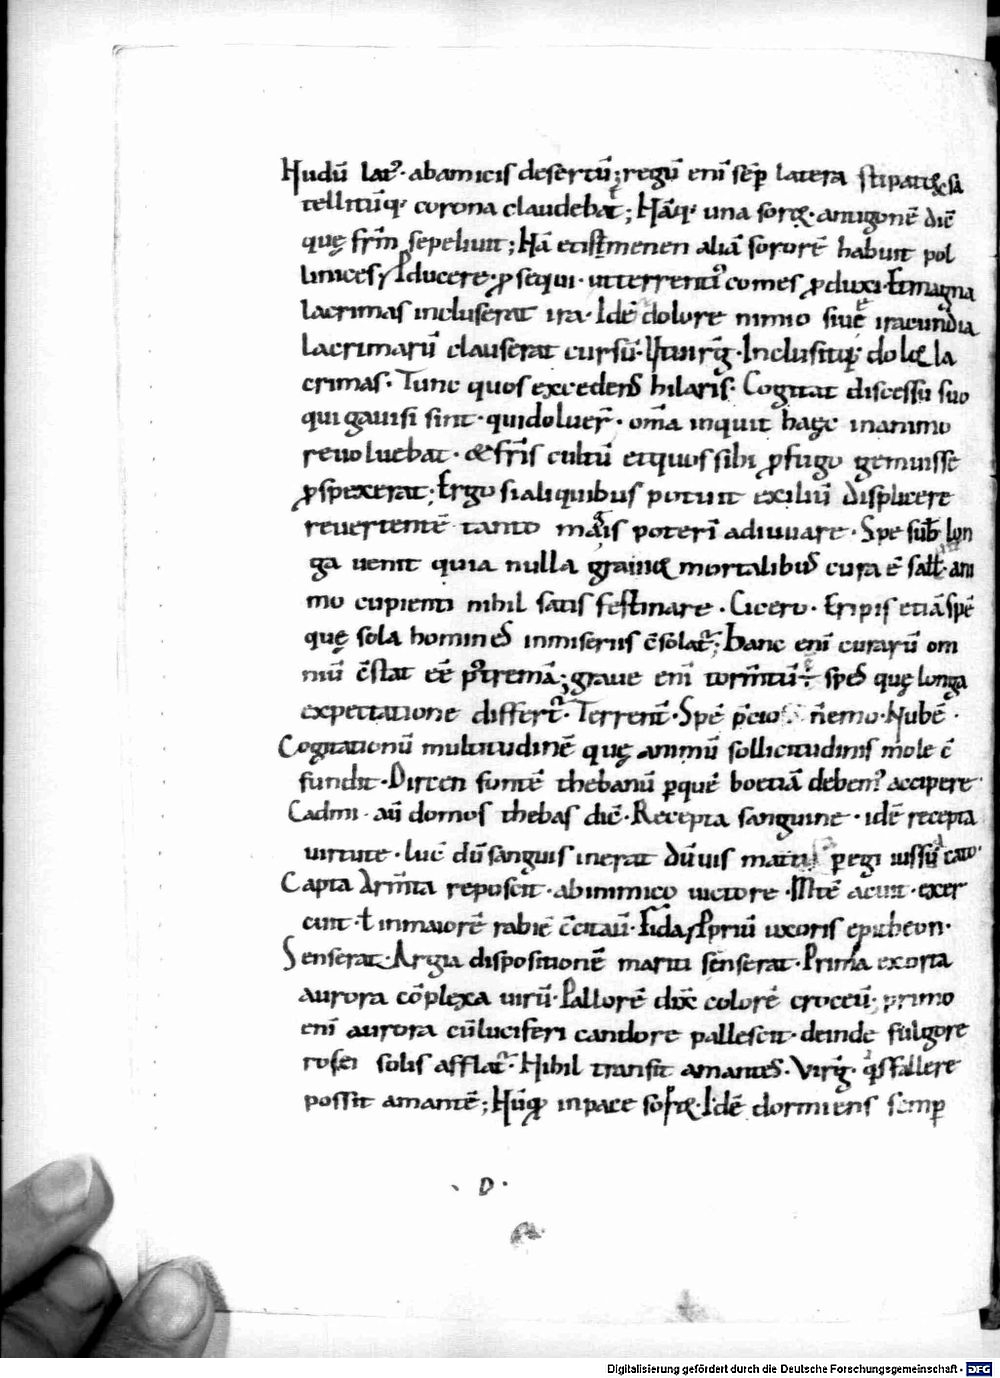 Nudū lat᾿· abamicis desertū; regū enī sēp latera stipat& sa
tellitūq· corona claudebat; Nāq· una soror· antigonē dic̄
quę frīm sepeliuit; Nā etismenen aliā sororē habuit pol
linices; Producere· ꝓsequi· utterrenti᾿ comes ꝓduxi· Et magna
lacrimas incluserat ira· Idē dolore nimio siue iracundia
lacrimarū clauserat cursū· Ut uirḡ· Inclusitq· dolor la
crimas· Tunc quos excedens hilaris· Cogitat discessu suo
qui gauisi sint· quidoluer̄· om̄a inquit haęc inanimo
reuoluebat· & fr̄is cultū etquos sibi ꝓfugo gemuisse
ꝓspexerat; Ergo sialiquibus potuit exiliū displicere
reuertentē tanto magis poterī adiuuare· Spe sub lon
ga uenit quia nulla grauior mortalibus cura ē satt· ani
mo cupienti nihil satis festinare· Cicero· Eripis etiā spē
quę sola homines inmiseriis c̄solat᾿; Hanc enī curarū om
niū c̄stat eē p᾿tremā; graue enī torm̄tū ÷ spes quę longa
expectatione differt᾿· Terrent· Spē nemo· Nubē·
Cogitationū multitudinē quę animū sollicitudinis mole c̄
fundit· Dircen fontē thebanū p̱quē boetiā deben᾿ accipere
Cadmi· au domos thebas dic̄· Recepta sanguine· idē recepta
uirtute· luc̄ dū sanguis inerat dū uis p̱egi iussu cato·
Capta Arm̄ta reposcit· abinimico uictore· Mtē acuit· exer
cuit· ł inmaiorē rabiē c̄citau· Fida; Propriū uxoris epitheon·
Senserat· Argia dispositionē mariti senserat· Prima exorta
aurora cōplexa uirū· Pallorē dix̄ colorē croceū· primo
enī aurora cū luciferi candore pallescit· deinde fulgore
rosei solis afflat᾿· Nihil transit amantes· Virḡ· q̇s fallere
possit amantē; Nūq inpace sopor· Idē dormiens semp
D·
Digitalisierung gefördert durch die Deutsche Forschungsgemeinschaft - DFG